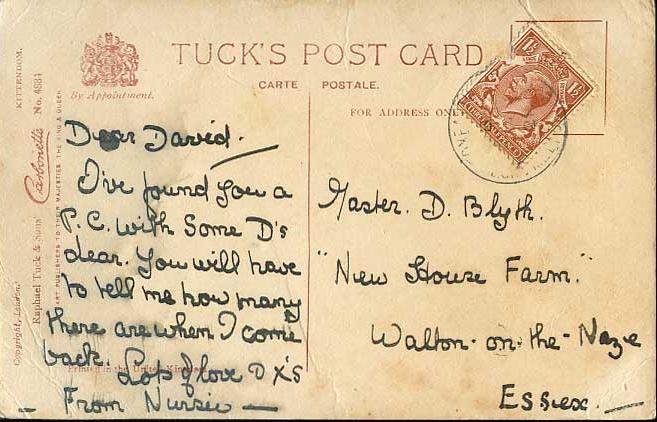 TUCK'S POST CARD
CARTE POSTALE.
FOR ADDRESS ONLY
By Appointment.
KITTENDOM.
Carbonette No. 4884
Raphael Tuck & Sons'
ART PUBLISHERS TO THEIR MAJESTIES THE KING & QUEEN
Copyright, London.
Dear David.
I've found you a
P.C. with Some D's
dear. You will have
to tell me how many
there are when I come
back. Lots of love D X's
From Nursie —
Printed in the United Kingdom
Master. D. Blyth.
"New House Farm."
Walton-on-the-Naze
Essex. —
1½
1½
THREE HALFPENCE